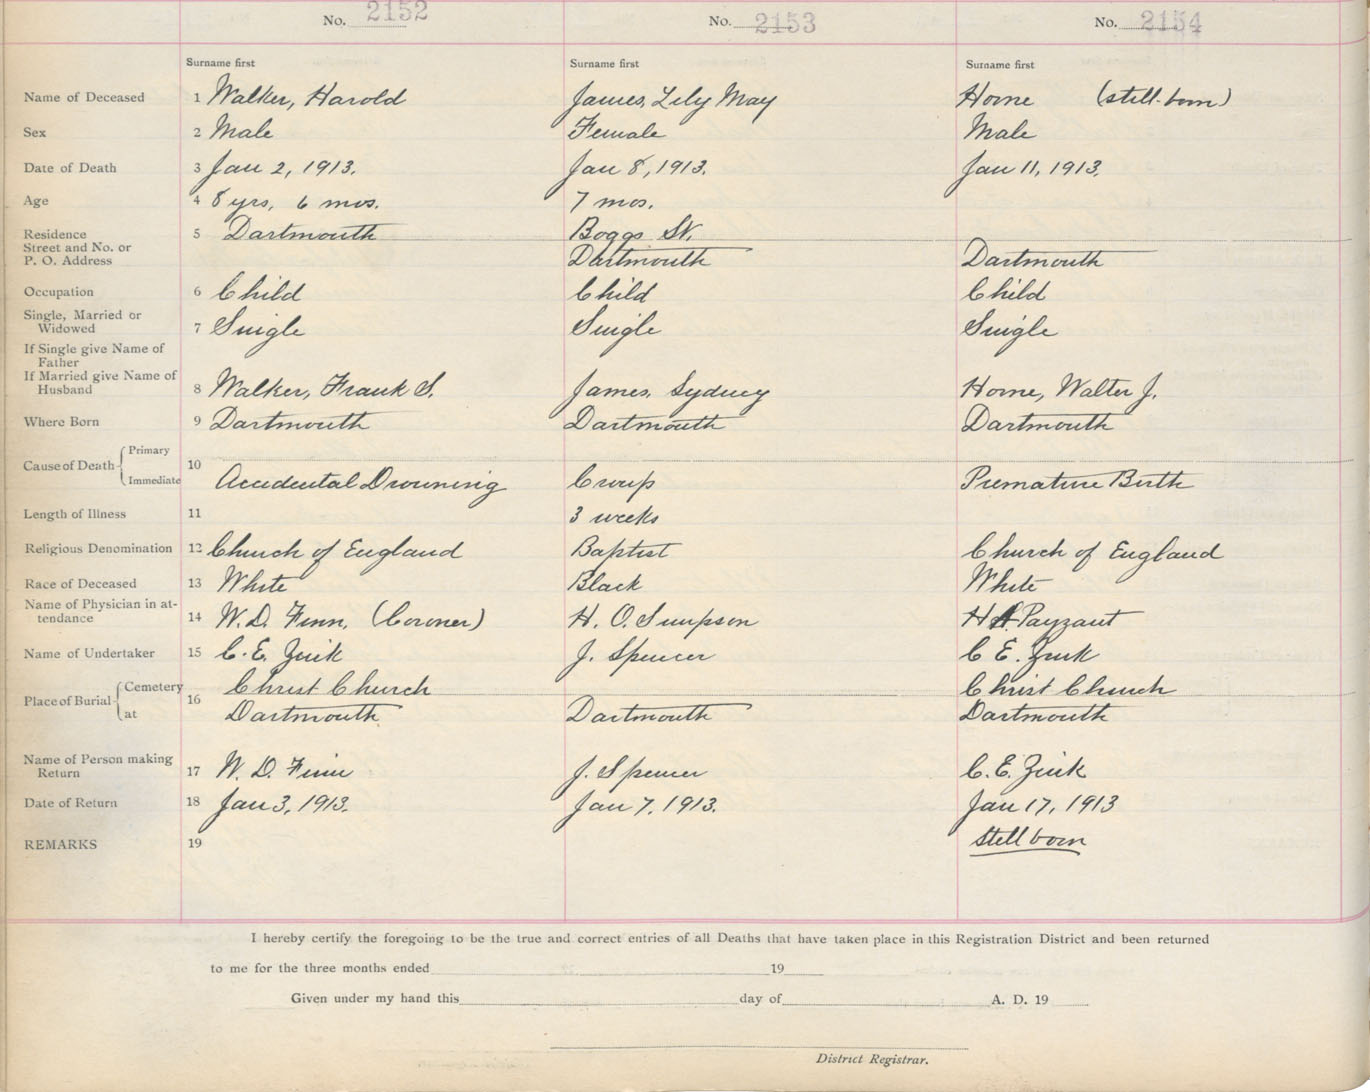 No. 2152 No. 2153 No. 2154
Surname first Surname first Surname first
Name of Deceased 1 Walker, Harold James, Lily May Horne (still-born)
Sex 2 Male Female Male
Date of Death 3 Jan 2, 1913. Jan 8, 1913. Jan 11, 1913.
Age 4 8 yrs, 6 mos. 7 mos.
Residence 5 Dartmouth Boggs St.
Street and No. or
P. O. Address Dartmouth Dartmouth
Occupation 6 Child Child Child
Single, Married or
Widowed 7 Single Single Single
If Single give Name of
Father
If Married give Name of
Husband 8 Walker, Frank S. James, Sydney Horne, Walter J.
Where Born 9 Dartmouth Dartmouth Dartmouth
Primary
Cause of Death 10
Immediate Accidental Drowning Croup Premature Birth
Length of Illness 11 3 weeks
Religious Denomination 12 Church of England Baptist Church of England
Race of Deceased 13 White Black White
Name of Physician in at-
tendance 14 W. D. Finn, (Coroner) H. O. Simpson H A Payzant
Name of Undertaker 15 C. E. Zink J. Spencer C E. Zink
Cemetery Christ Church Christ Church
Place of Burial 16
at Dartmouth Dartmouth Dartmouth
Name of Person making
Return 17 W. D. Finn J. Spencer C. E. Zink
Date of Return 18 Jan 3, 1913. Jan 7, 1913. Jan 17, 1913
REMARKS 19 still born
I hereby certify the foregoing to be the true and correct entries of all Deaths that have taken place in this Registration District and been returned
to me for the three months ended 19
Given under my hand this day of A. D. 19
District Registrar.